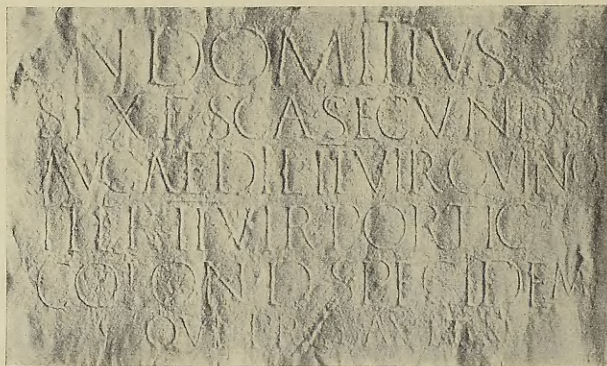 N DOMITIVS
SEX F SCA SECVNDVS
AVG AEDIL II VIR QVINQ
ITER II VIR PORTIC
COLON D S PEC IDEM
QVE PROBAVIT